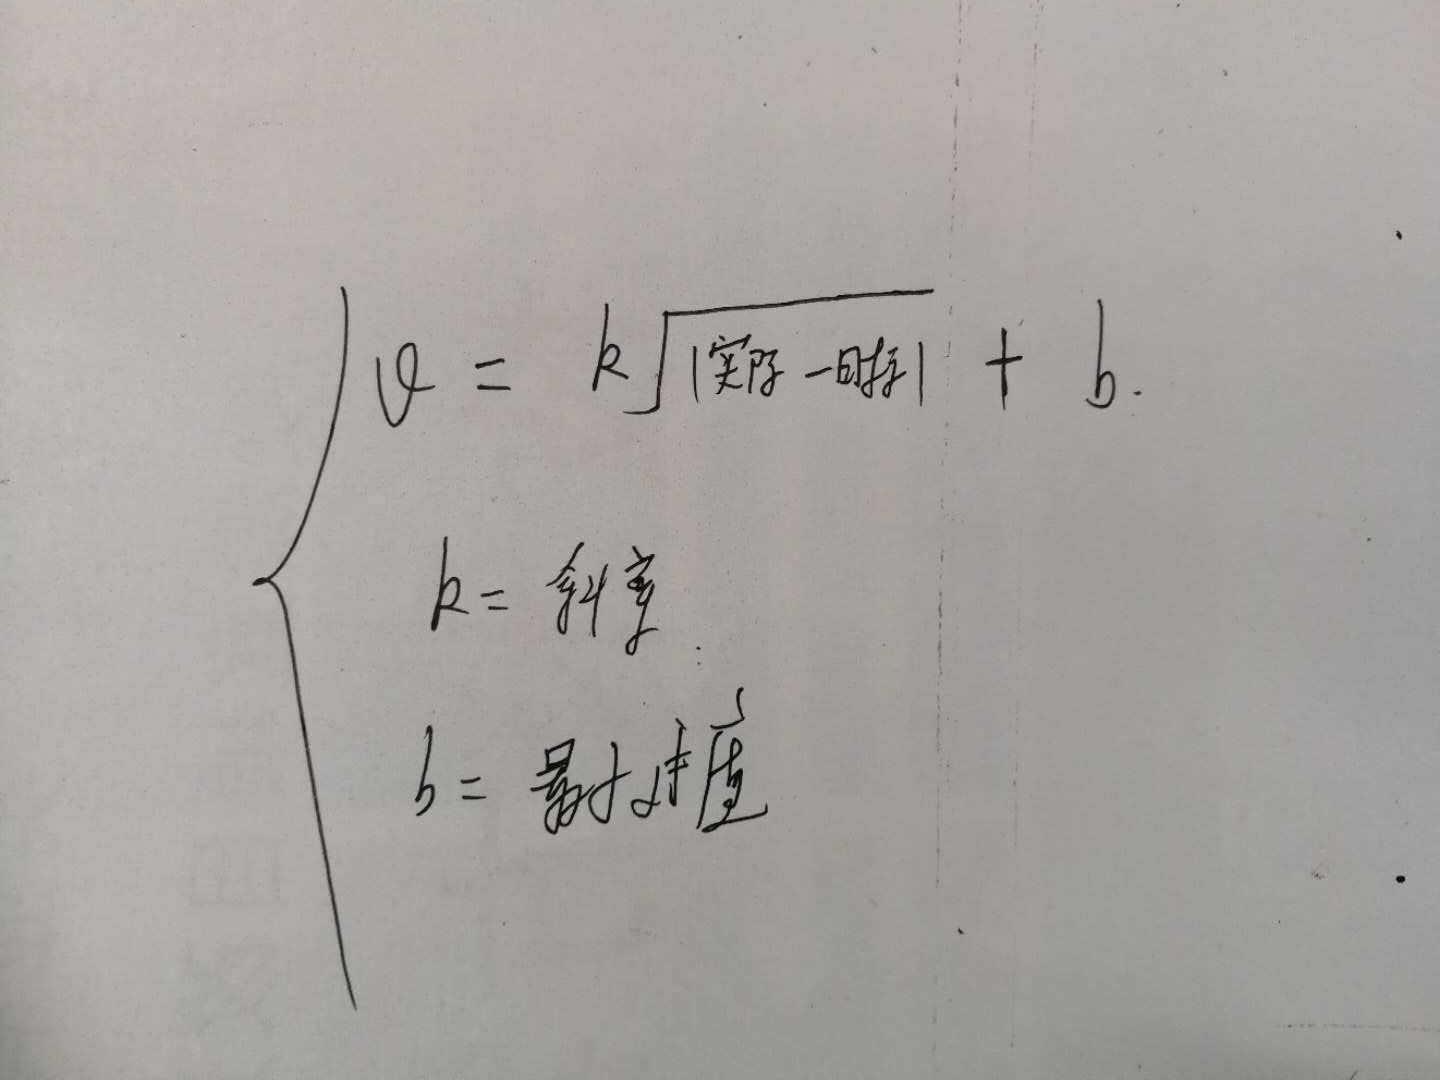 v = k√|实际-目标| + b.
k = 斜率
b = 最小速度